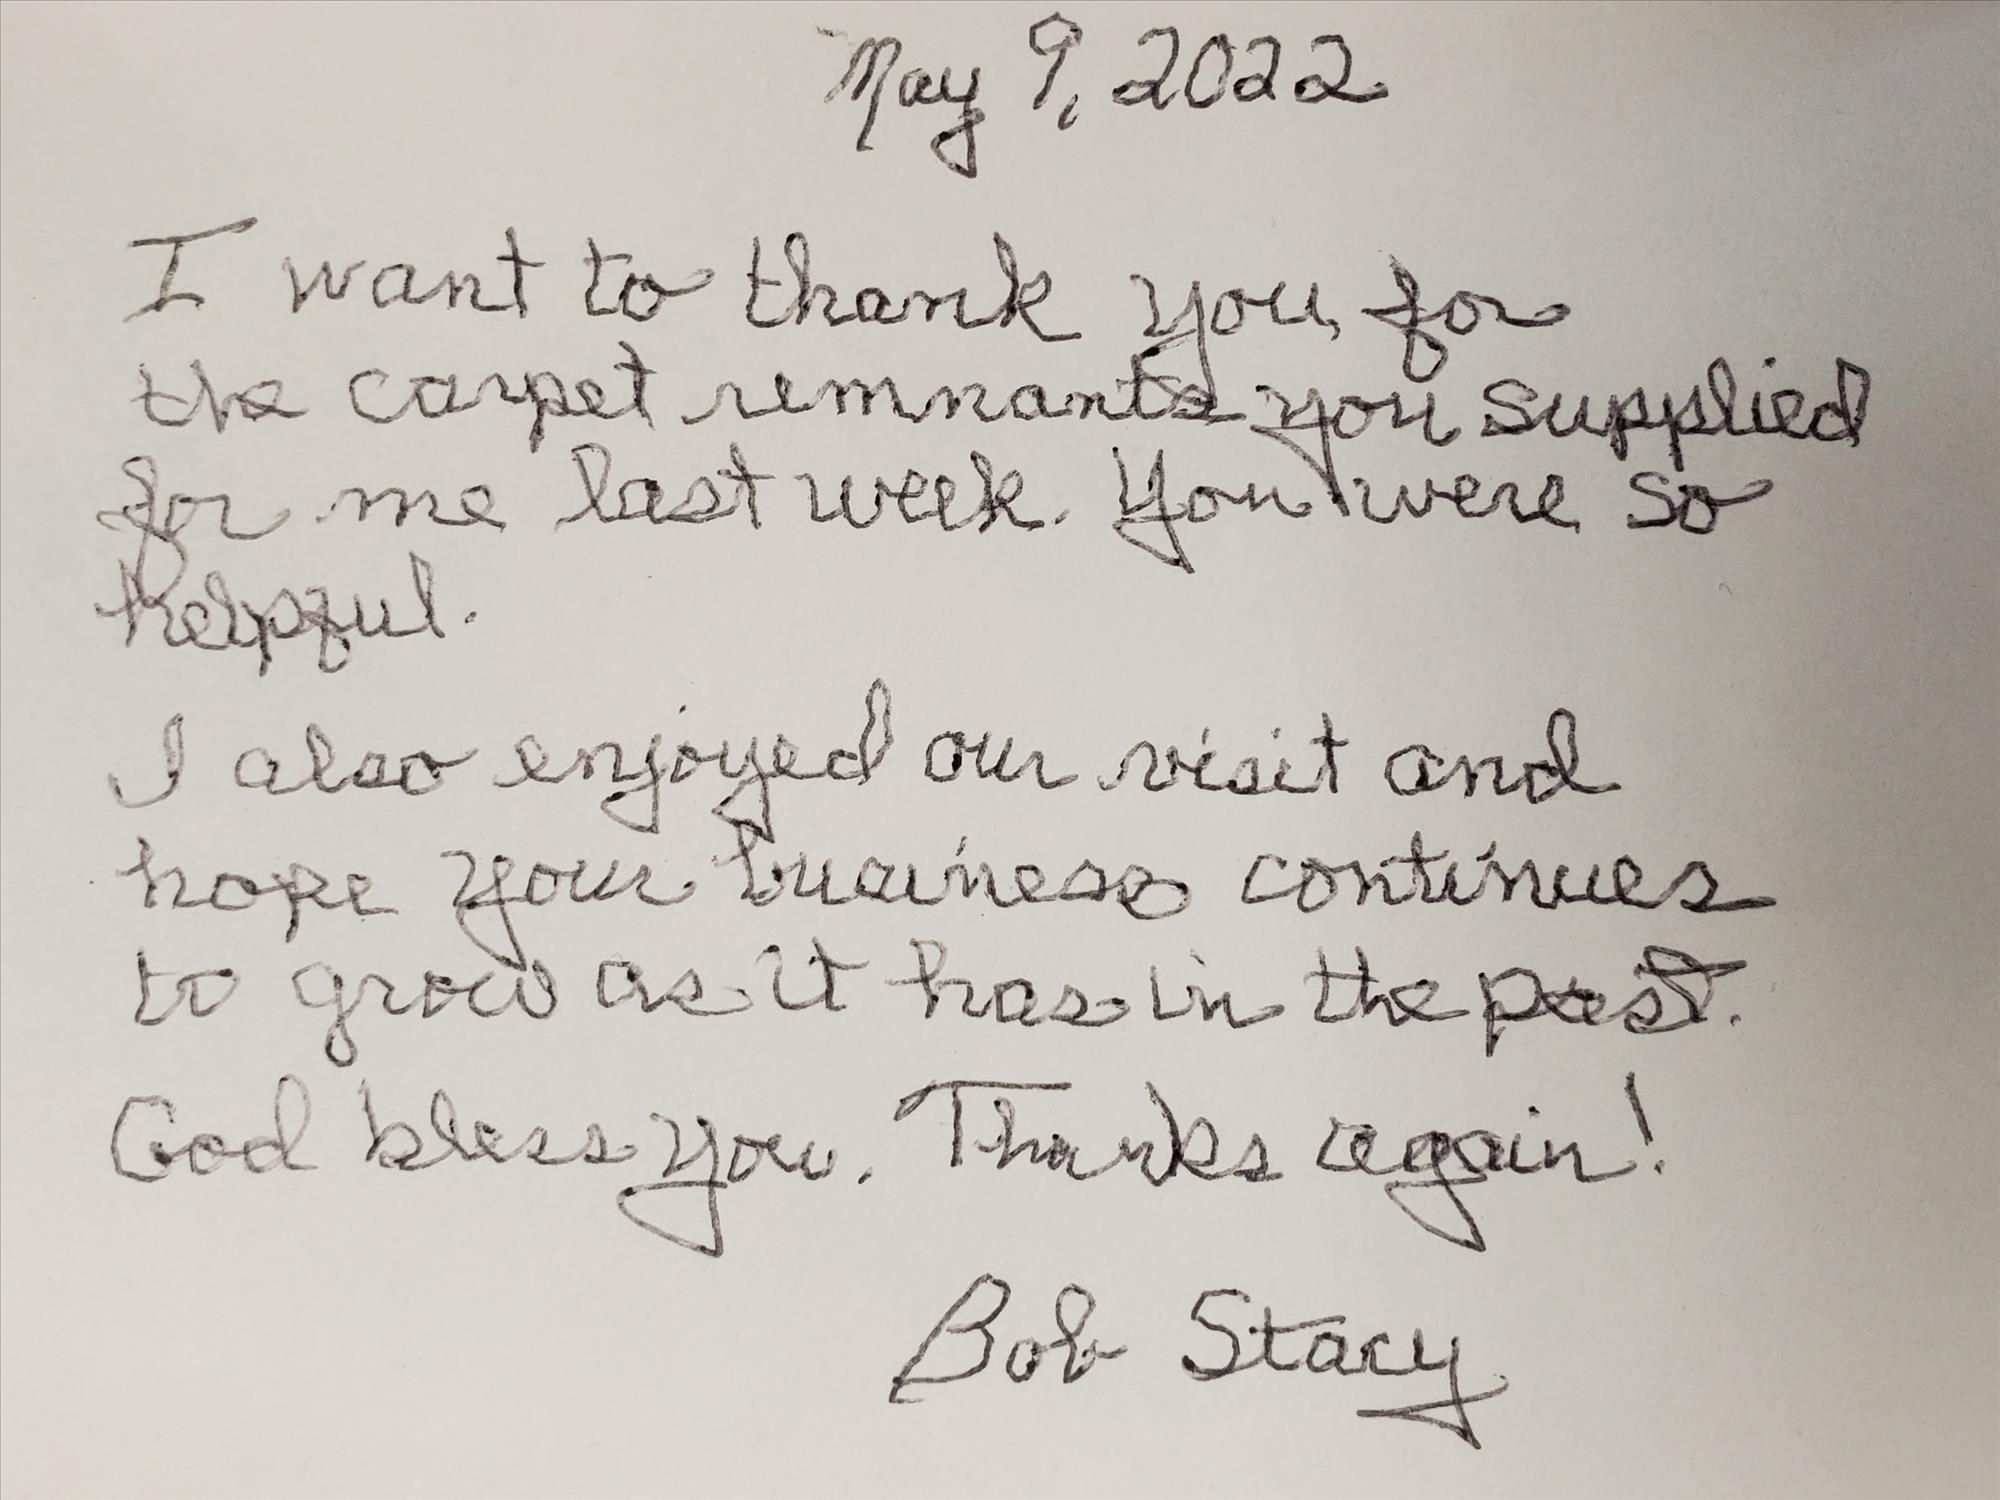 May 9, 2022
I want to thank you for
the carpet remnants you supplied
for me last week. You were so
helpful.
I also enjoyed our visit and
hope your business continues
to grow as it has in the past.
God bless you. Thanks again!
Bob Stacy